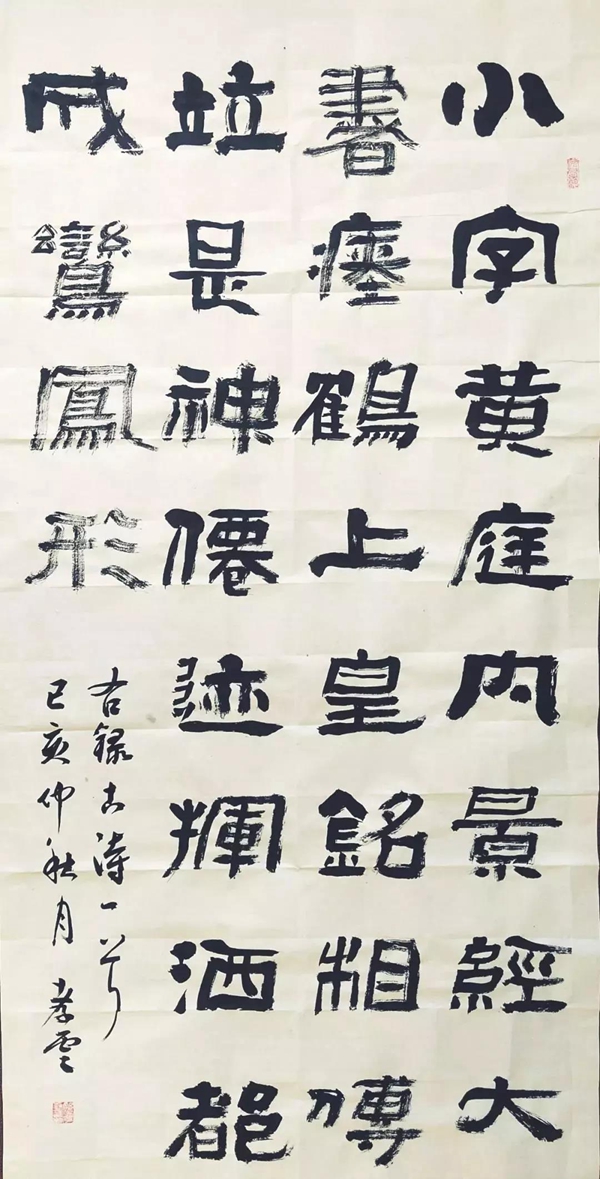 小字黄庭内景經大
書瘞鶴上皇銘相傳
竝是神僊迹揮洒都
成鸞鳳形
右錄古詩一首
己亥仲秋月 孝雲